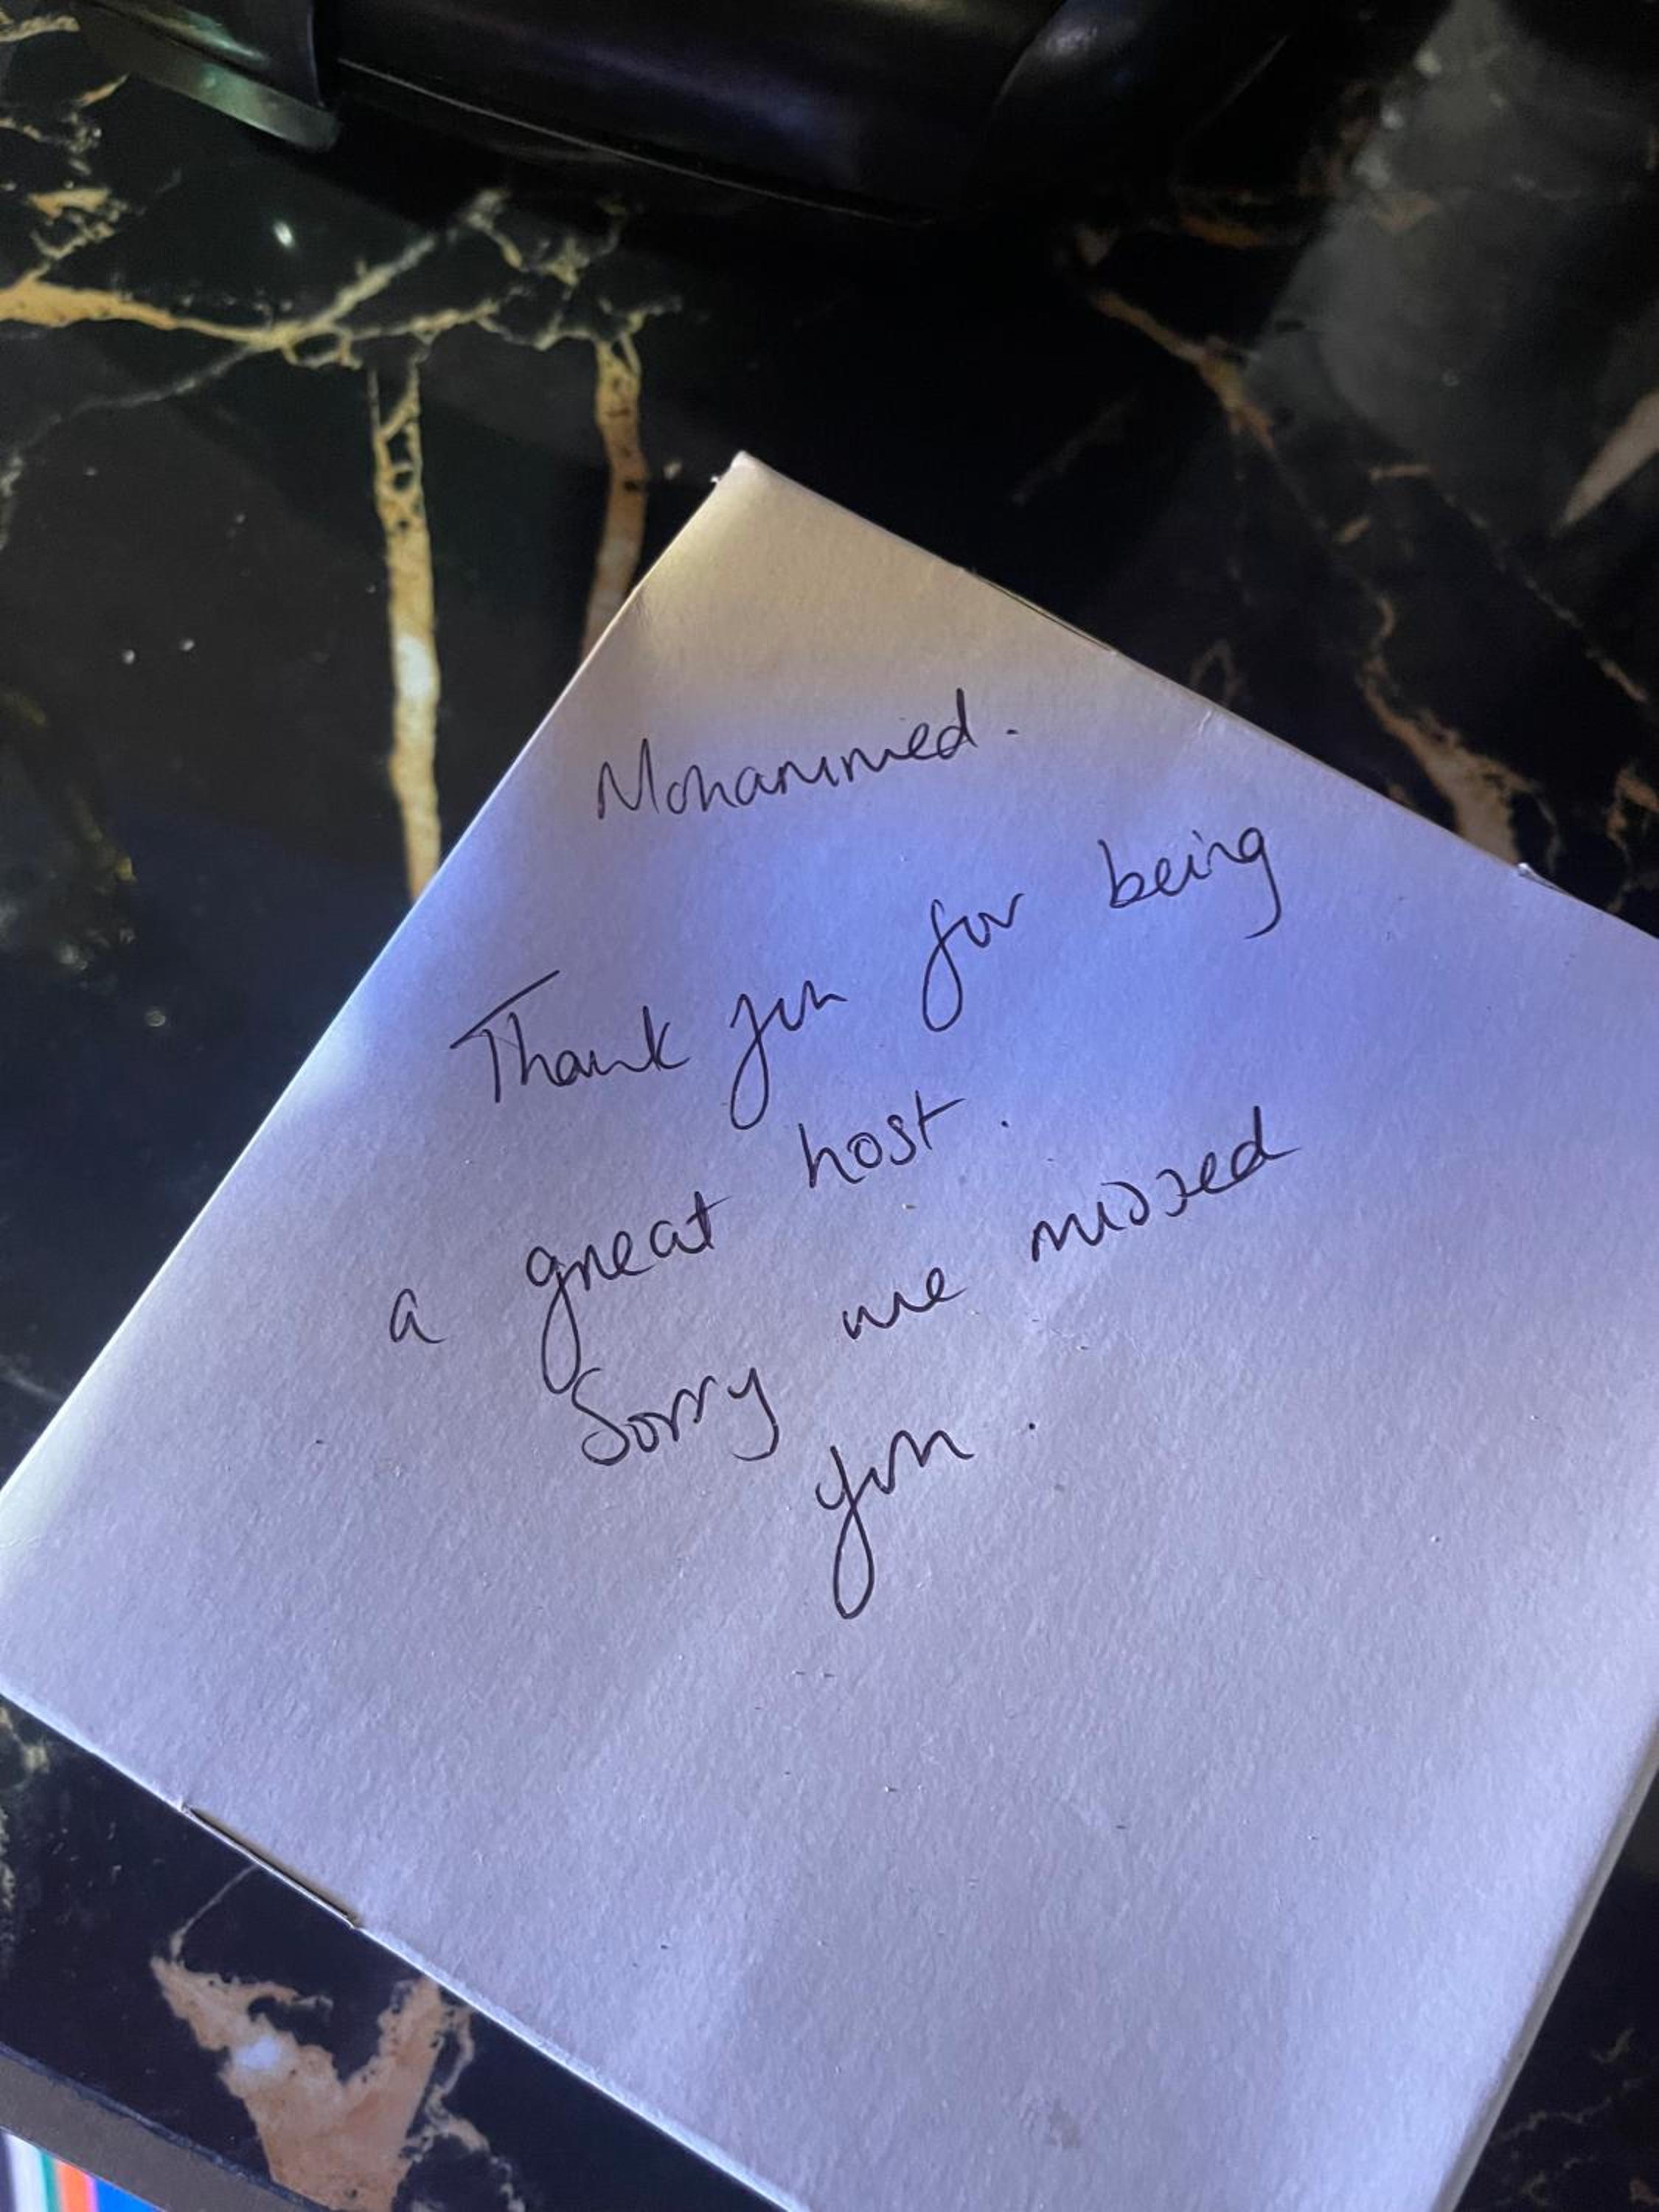 Mohammed.
Thank you for being
a great host.
Sorry we missed
you.